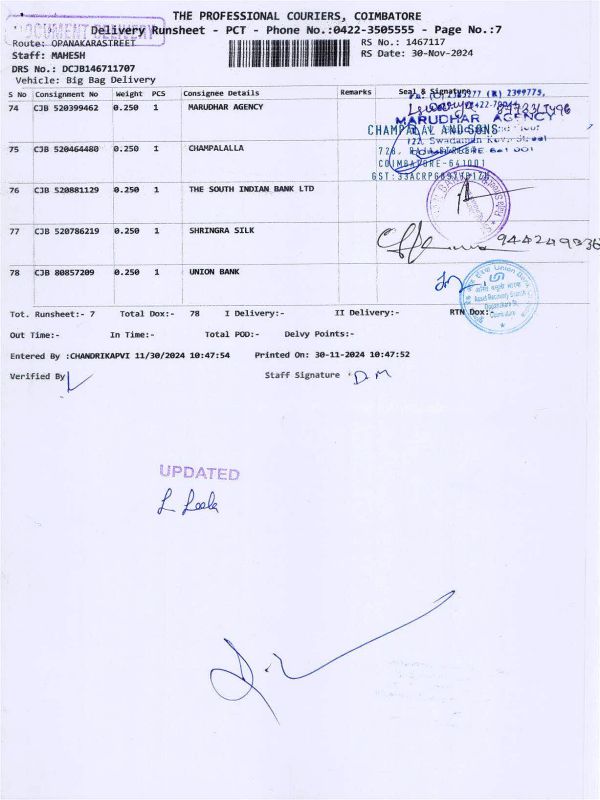 THE PROFESSIONAL COURIERS, COIMBATORE
DOCUMENT DELIVERY
Delivery Runsheet - PCT - Phone No.:0422-3505555 - Page No.:7
Route: OPANAKARASTREET
RS No.: 1467117
Staff: MAHESH
RS Date: 30-Nov-2024
DRS No.: DCJB146711707
Vehicle: Big Bag Delivery
S No Consignment No Weight PCS Consignee Details Remarks Seal & Signature
74 CJB 520399462 0.250 1 MARUDHAR AGENCY
MARUDHAR AGENCY
CHAMPALAL AND SONS
75 CJB 520464480 0.250 1 CHAMPALALLA
COIMBATORE-641001
76 CJB 520881129 0.250 1 THE SOUTH INDIAN BANK LTD
77 CJB 520786219 0.250 1 SHRINGRA SILK
78 CJB 80857209 0.250 1 UNION BANK
Union Bank
Tot. Runsheet:- 7 Total Dox:- 78 I Delivery:- II Delivery:- RTN Dox:-
Out Time:- In Time:- Total POD:- Delvy Points:-
Entered By :CHANDRIKAPVI 11/30/2024 10:47:54 Printed On: 30-11-2024 10:47:52
Verified By Staff Signature D.M
UPDATED
L Leela